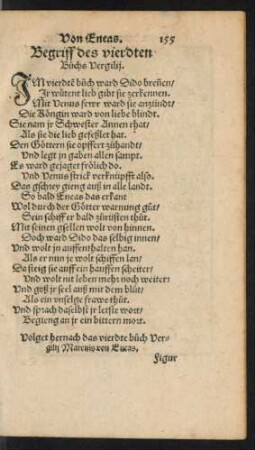 Von Eneas. 155
Begriff des vierdten
Büchs Vergilij.
IM vierdtē bůch ward Dido breñen/
Jr wůtent lieb gibt sie zerkennen.
Mit Venus fewr ward sie anzündt/
Die Köngin ward von liebe blindt.
Sie nam jr Schwester Annen rhat/
Als sie die lieb gefeßlet hat.
Den Göttern sie opffert zůhandt/
Vnd legt jn gaben allen sampt.
Es ward gejaget frölich do.
Vnd Venus strick verknüpfft also.
Das gschrey gieng auß in alle landt.
So bald Eneas das erkant
Wol durch der Götter warnung gůt/
Sein schiff er bald zůrüsten thůt.
Mit seinen gsellen wolt von hinnen.
Doch ward Dido das selbig innen/
Vnd wolt jn auffenthalten han.
Als er nun je wolt schiffen lan/
Da steig sie auff ein hauffen scheiter/
Vnd wolt nit leben mehr noch weiter:
Vnd goß jr seel auß mit dem blůt/
Als ein vnselge frawe thůt.
Vnd sprach daselbst jr letste wort/
Begieng an jr ein bittern mort.
Volget hernach das vierdte bůch Ver-
gilij Maronis von Eneas.
Figur